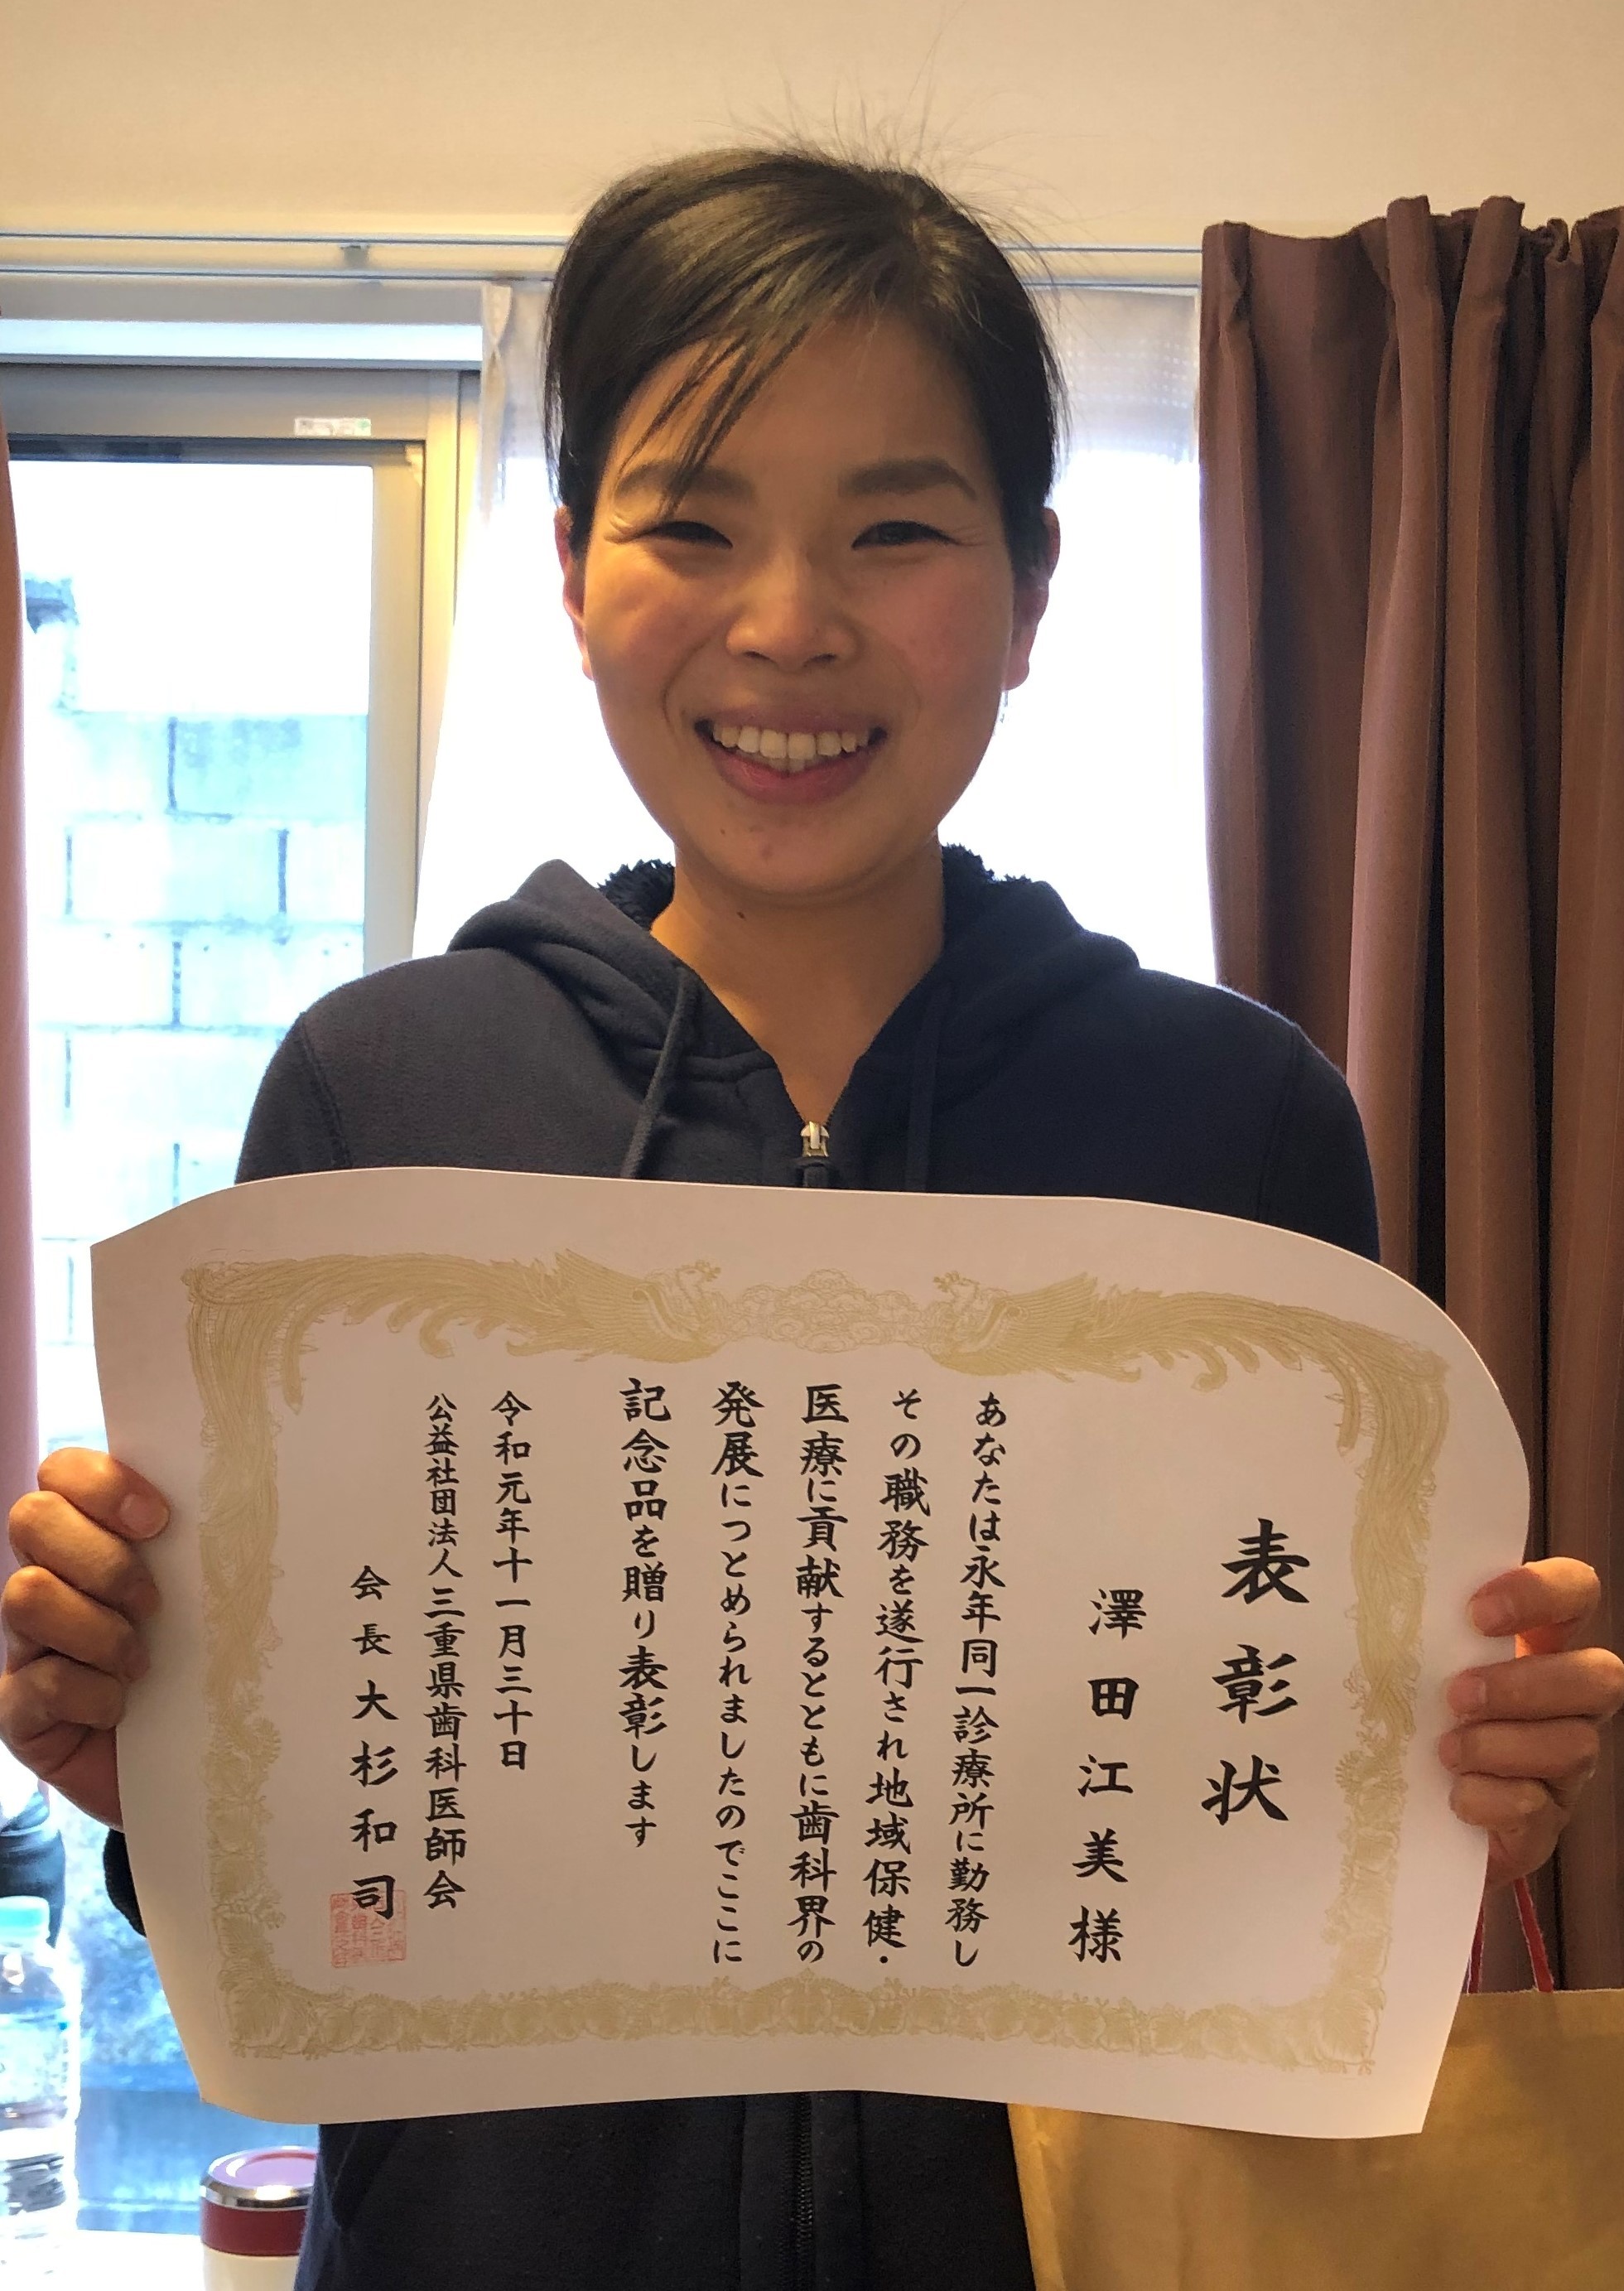 表彰状
澤田江美様
あなたは永年同一診療所に勤務し
その職務を遂行され地域保健・
医療に貢献するとともに歯科界の
発展につとめられましたのでここに
記念品を贈り表彰します
令和元年十一月三十日
公益社団法人三重県歯科医師会
会長大杉和司